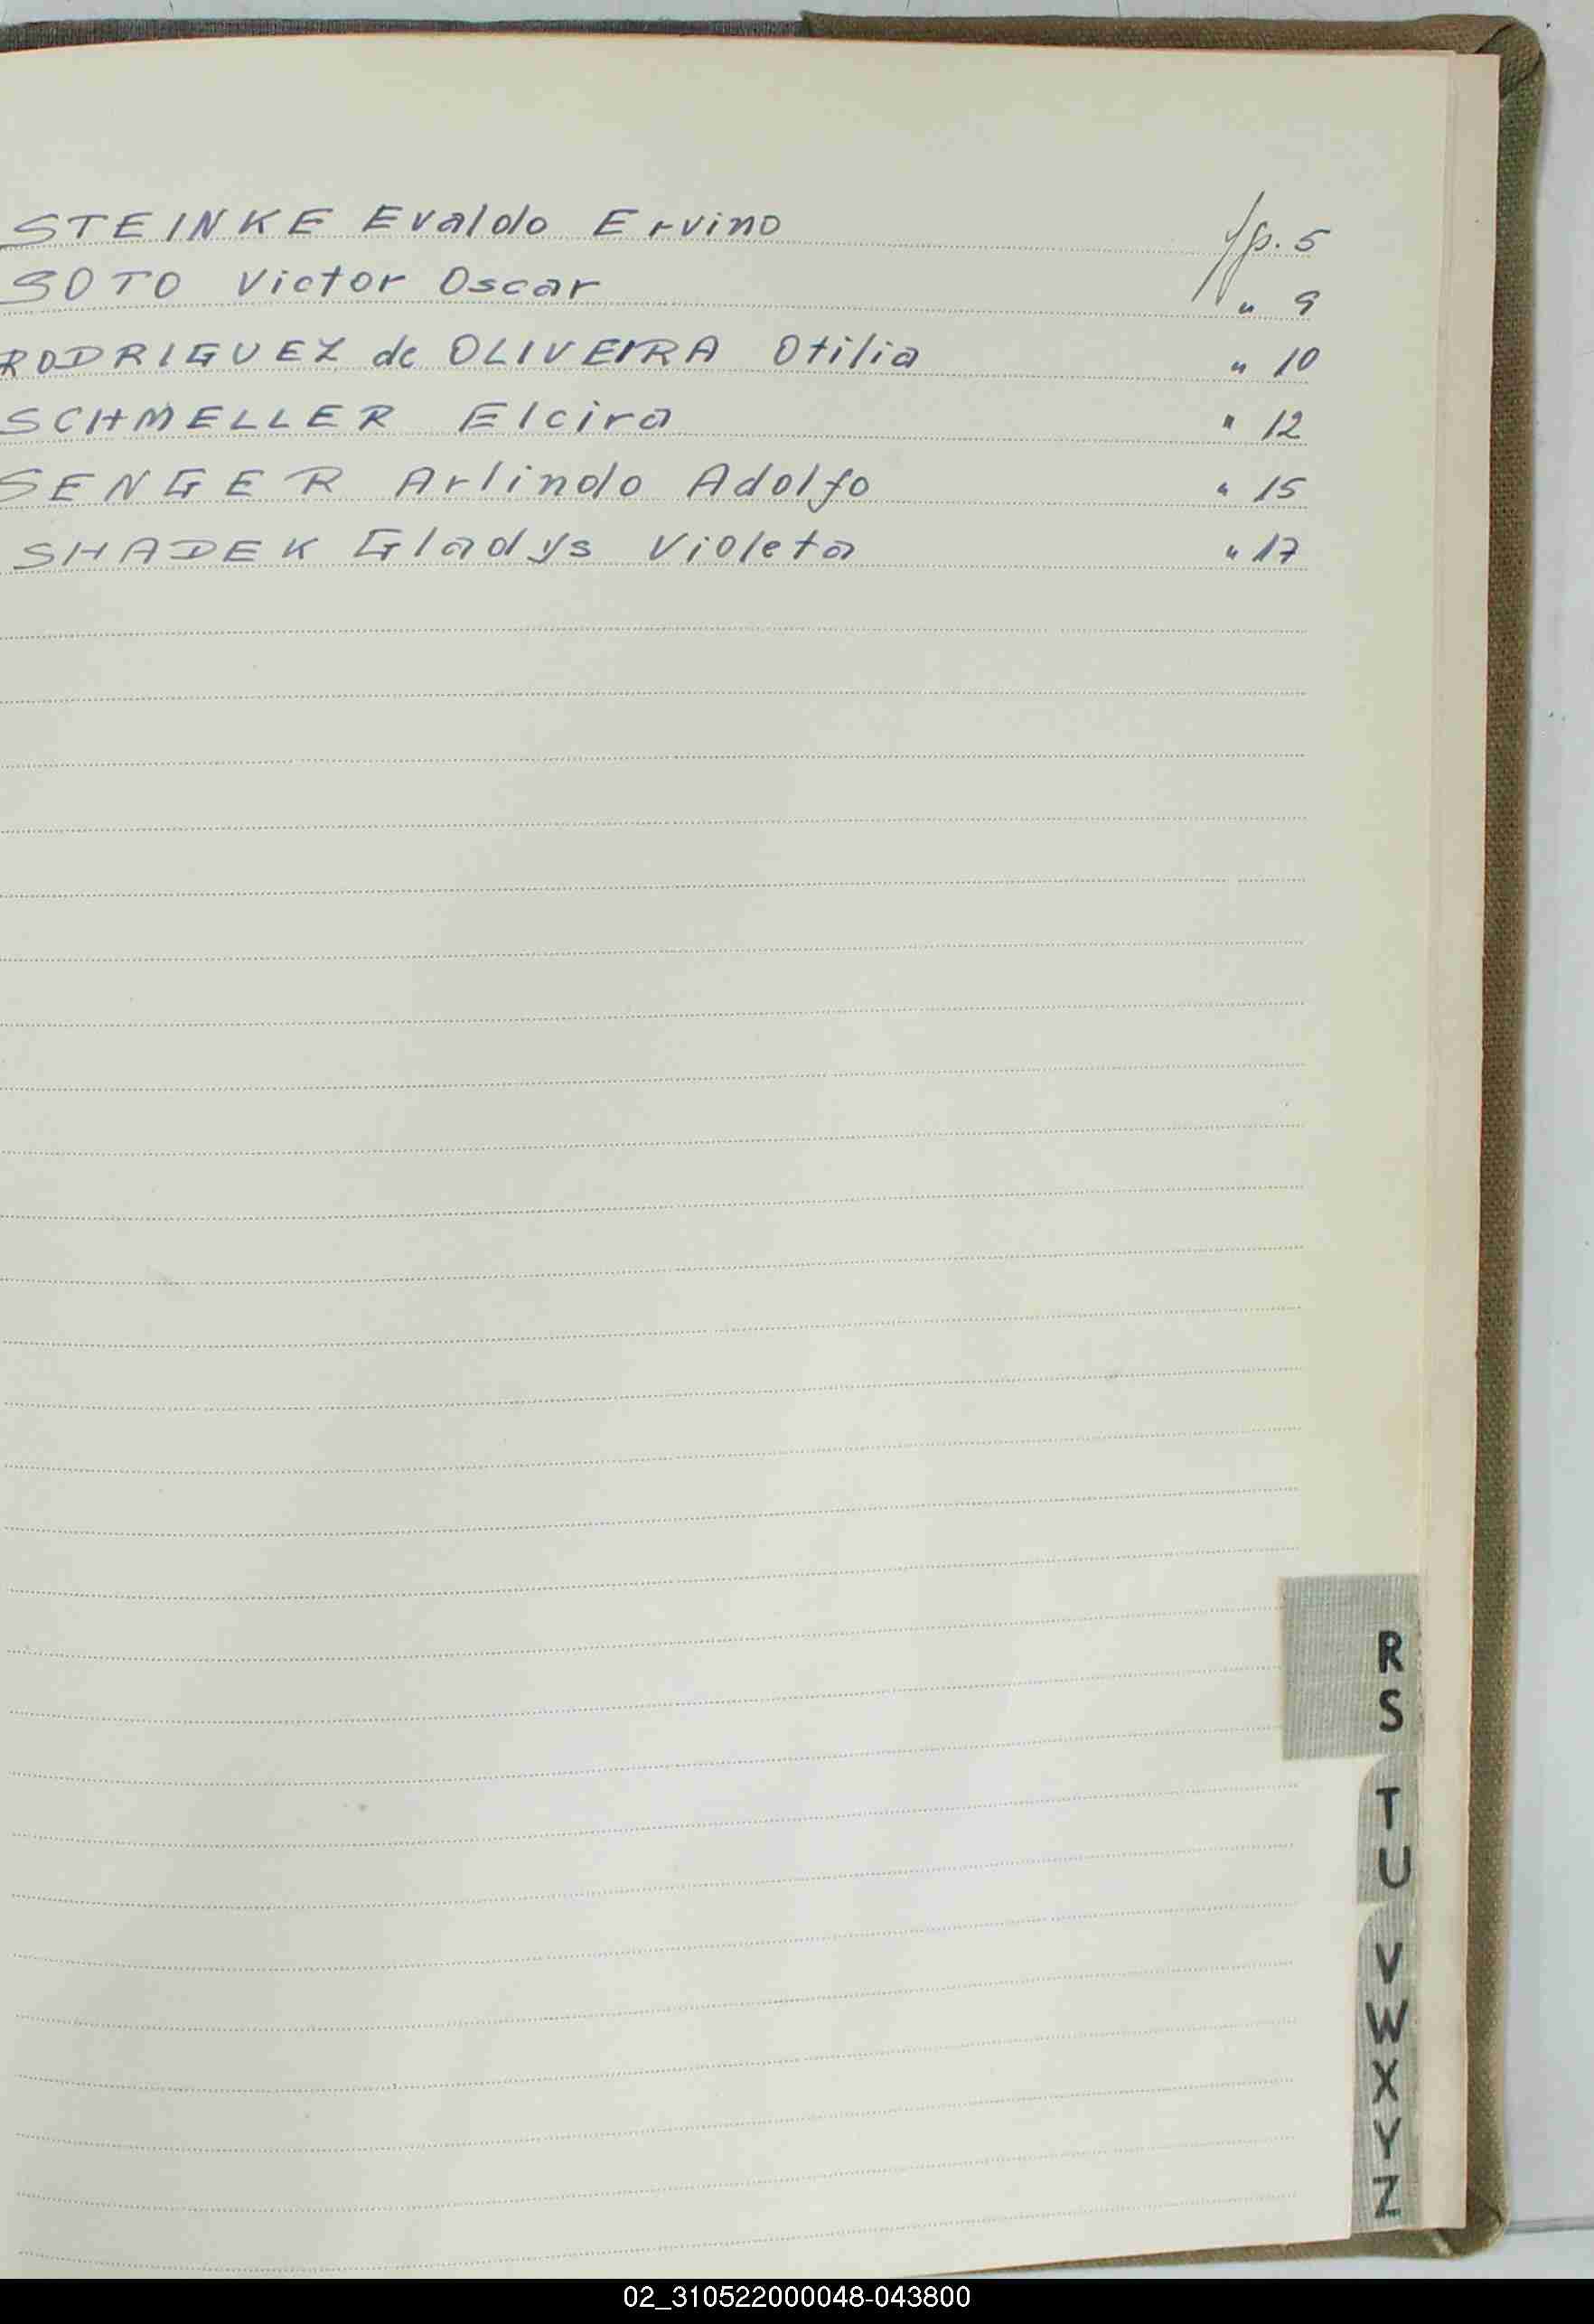 STEINKE Evaldo Ervino fp. 5
SOTO Victor Oscar " 9
RODRIGUEZ de OLIVEIRA Otilia " 10
SCHMELLER Elcira " 12
SENGER Arlindo Adolfo " 15
SHADEK Gladys Violeta " 17
R
S
T
U
V
W
X
Y
Z
02_310522000048-043800